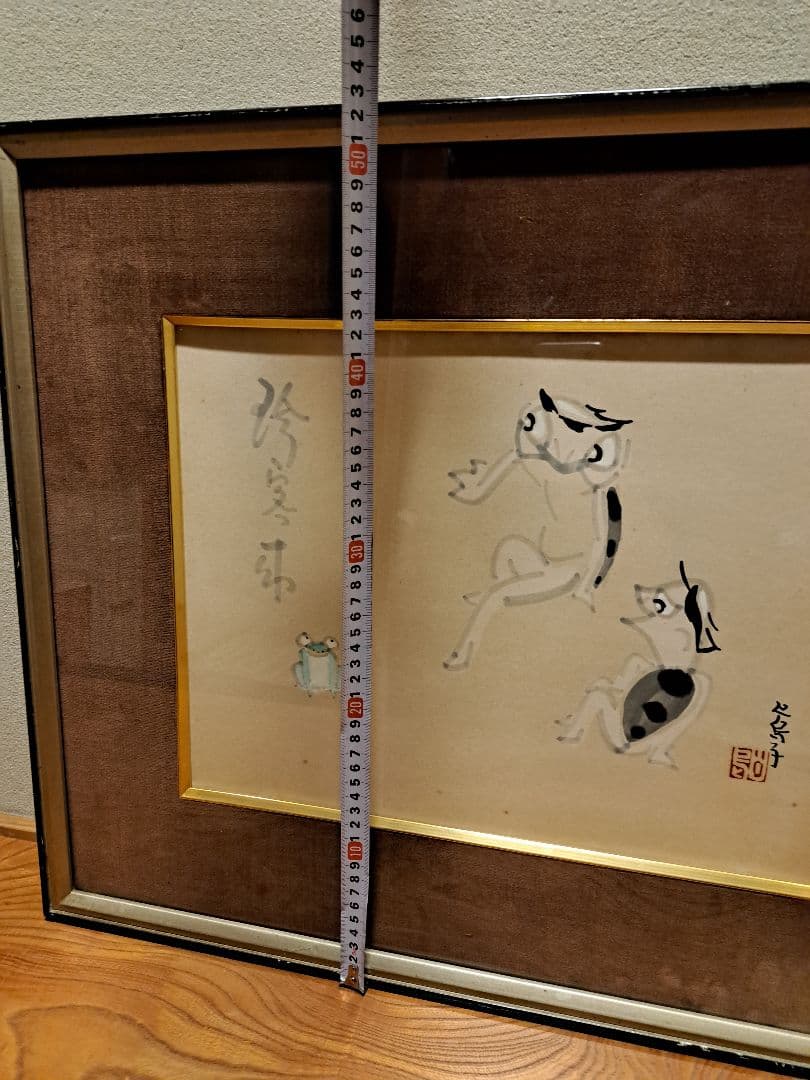 珍客来
2 3 4 5 6 7 8 9 10 1 2 3 4 5 6 7 8 9 20 1 2 3 4 5 6 7 8 9 30 1 2 3 4 5 6 7 8 9 40 1 2 3 4 5 6 7 8 9 50 1 2 3 4 5 6